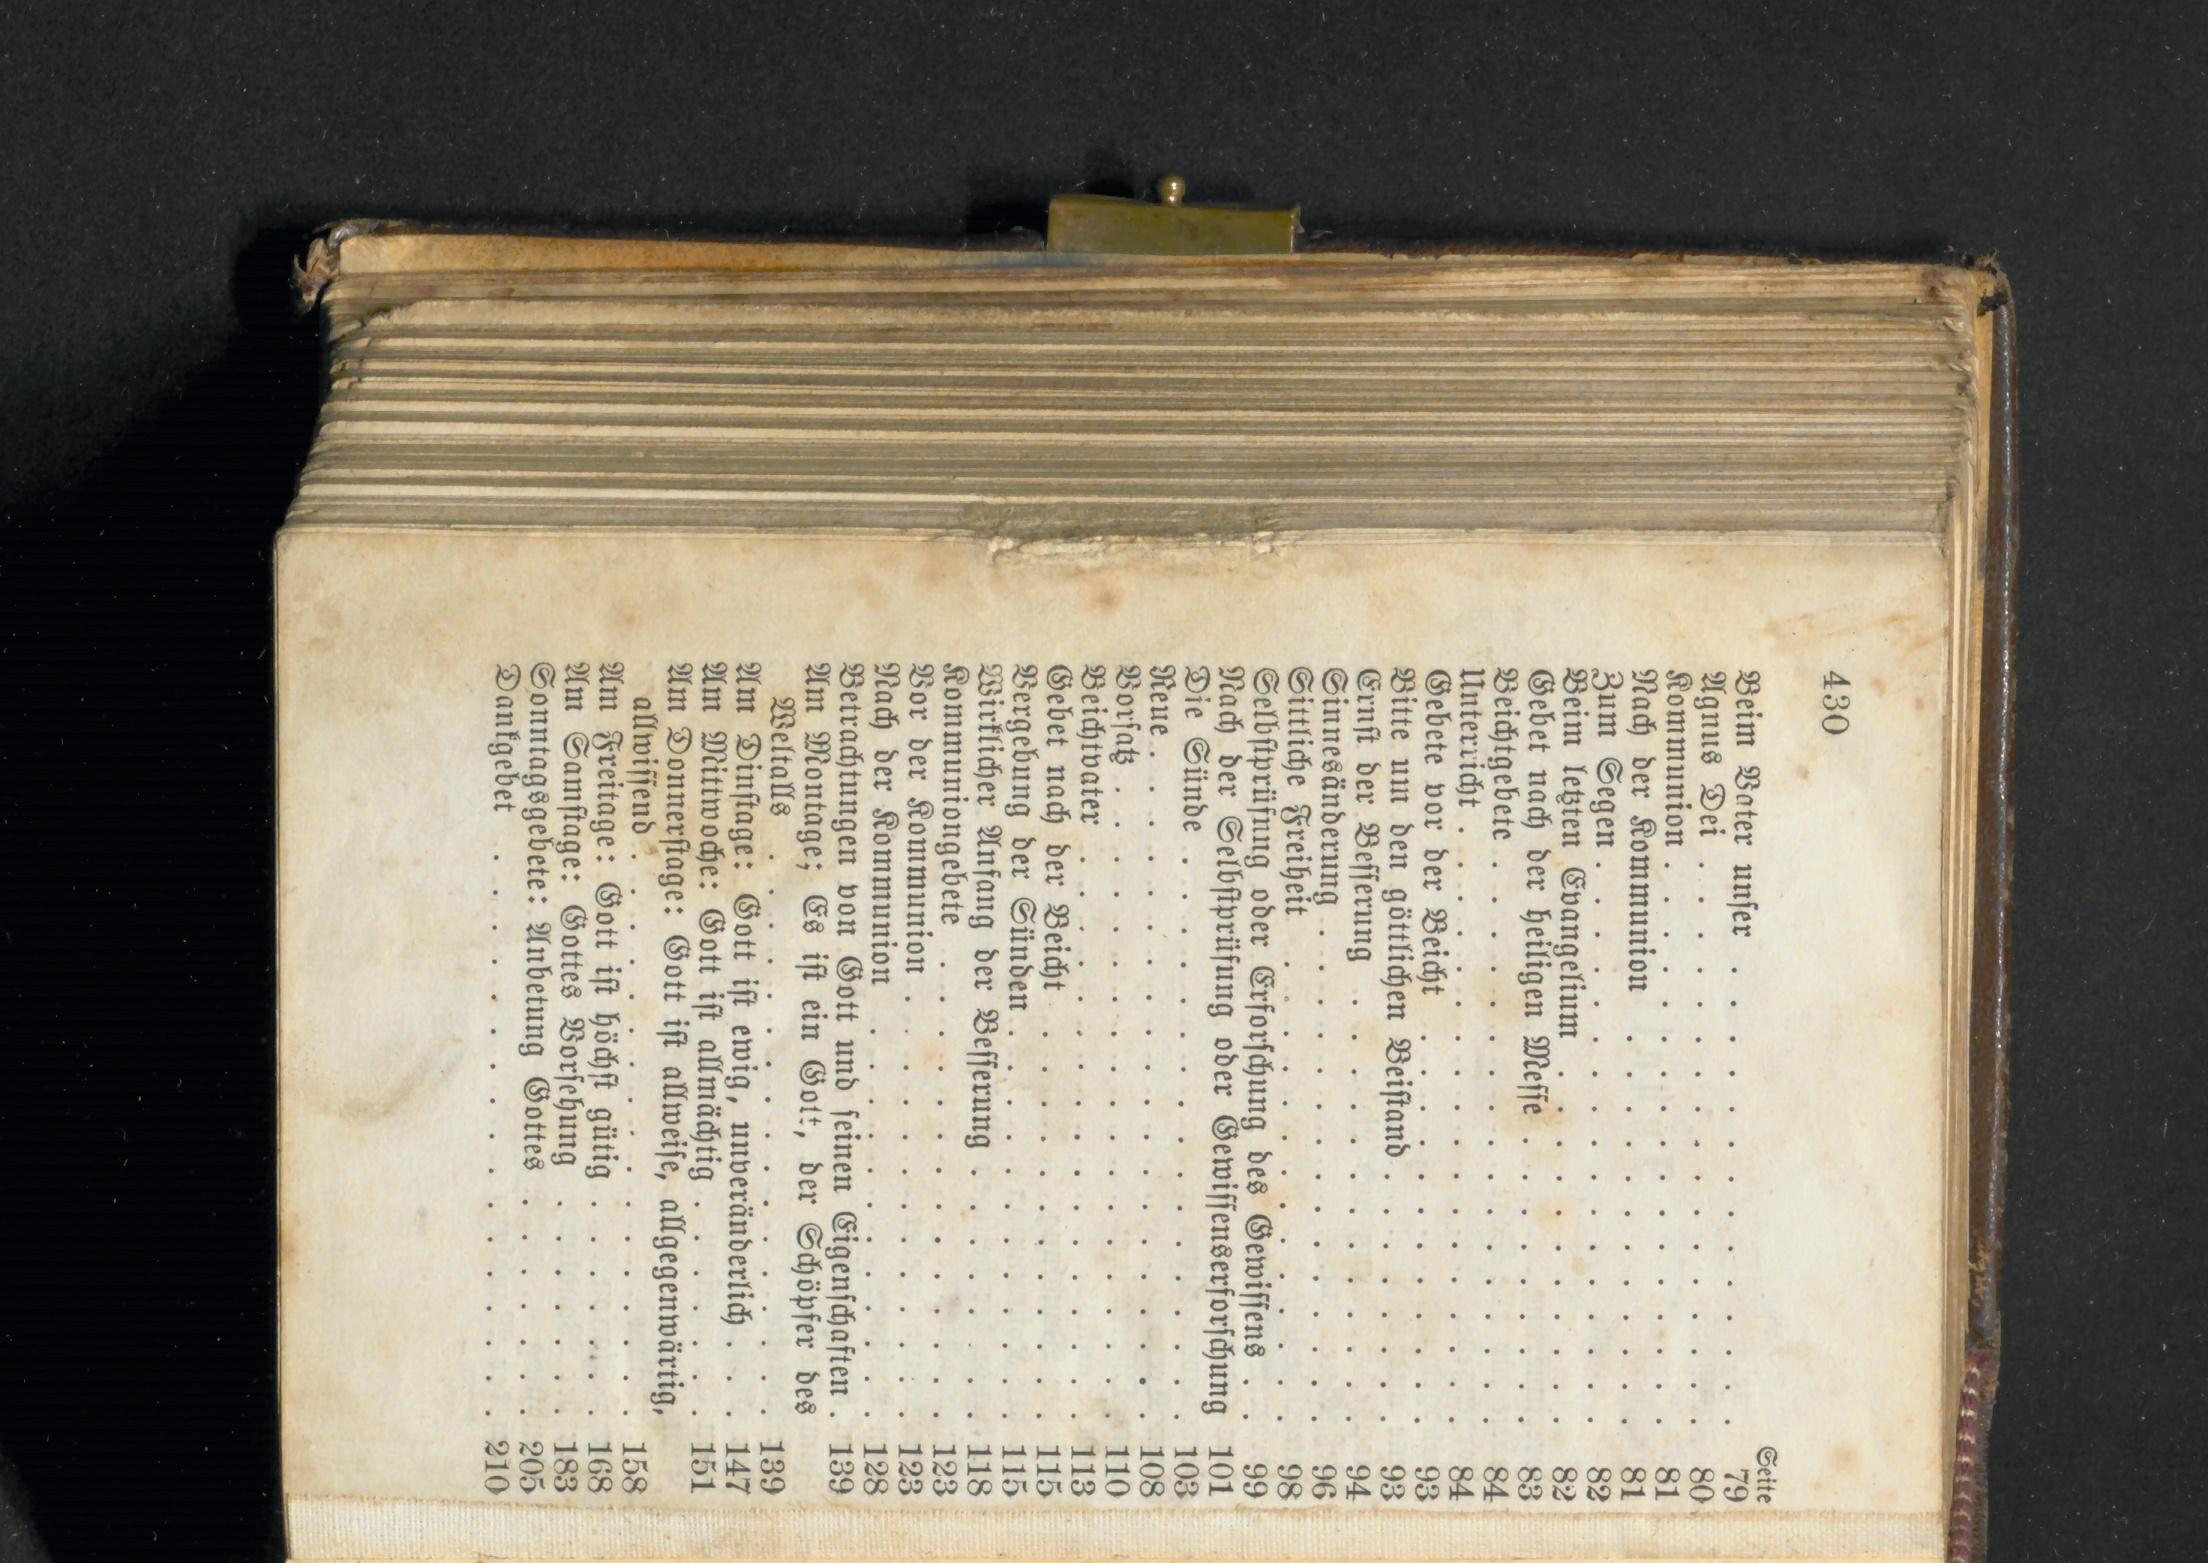 430
Seite
Beim Vater unser . . . . . . . . . . . . . . 79
Agnus Dei . . . . . . . . . . . . . . . . . 80
Kommunion . . . . . . . . . . . . . . . . . 81
Nach der Kommunion . . . . . . . . . . . . 81
Zum Segen . . . . . . . . . . . . . . . . . 82
Beim letzten Evangelium . . . . . . . . . . . 82
Gebet nach der heiligen Messe . . . . . . . . . 83
Beichtgebete . . . . . . . . . . . . . . . . . 84
Unterricht . . . . . . . . . . . . . . . . . . 84
Gebete vor der Beicht . . . . . . . . . . . . 93
Bitte um den göttlichen Beistand . . . . . . . . 93
Ernst der Besserung . . . . . . . . . . . . . 94
Sinnesänderung . . . . . . . . . . . . . . . 96
Sittliche Freiheit . . . . . . . . . . . . . . 98
Selbstprüfung oder Erforschung des Gewissens . . 99
Nach der Selbstprüfung oder Gewissenserforschung 101
Die Sünde . . . . . . . . . . . . . . . . . 103
Reue . . . . . . . . . . . . . . . . . . . . 108
Vorsatz . . . . . . . . . . . . . . . . . . . 110
Beichtvater . . . . . . . . . . . . . . . . . 113
Gebet nach der Beicht . . . . . . . . . . . . 115
Vergebung der Sünden . . . . . . . . . . . . 115
Wirklicher Anfang der Besserung . . . . . . . . 118
Kommuniongebete . . . . . . . . . . . . . . 123
Vor der Kommunion . . . . . . . . . . . . . 123
Nach der Kommunion . . . . . . . . . . . . 128
Betrachtungen von Gott und seinen Eigenschaften . 139
Am Montage; Es ist ein Gott, der Schöpfer des
Weltalls . . . . . . . . . . . . . . . . . 139
Am Dinstage: Gott ist ewig, unveränderlich . . . 147
Am Mittwoche: Gott ist allmächtig . . . . . . . 151
Am Donnerstage: Gott ist allweise, allgegenwärtig,
allwissend . . . . . . . . . . . . . . . . . 158
Am Freitage: Gott ist höchst gütig . . . . . . . 168
Am Samstage: Gottes Vorsehung . . . . . . . 183
Sonntagsgebete: Anbetung Gottes . . . . . . . 205
Dankgebet . . . . . . . . . . . . . . . . . 210